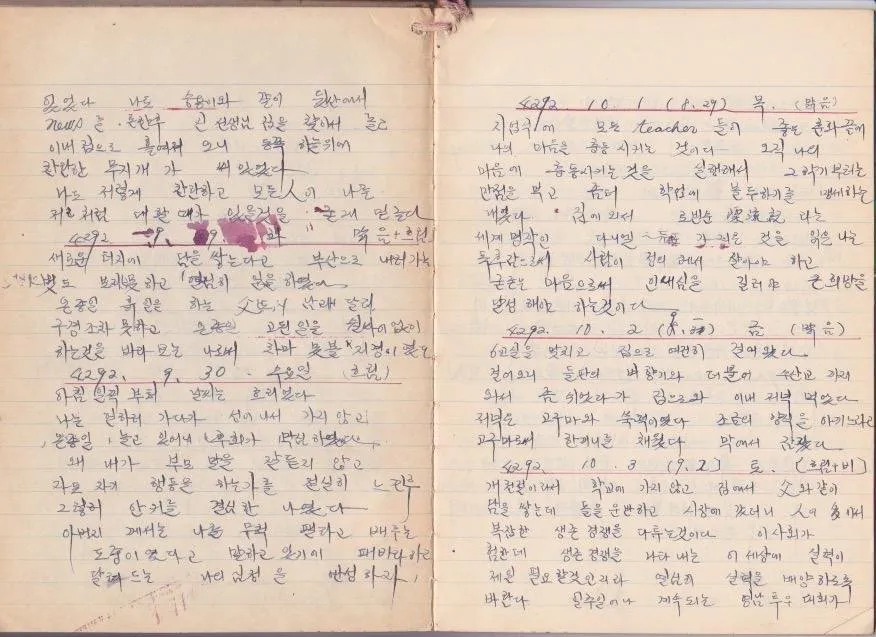 있었다 나도 승용이와 같이 뒷산에서
news 를 들은후 선생님 집을 찾아서 놀고
이내 집으로 돌아 오니 동쪽 하늘위에
찬란한 무지개가 써 있었다
나도 저렇게 찬란하고 모든人이 나를
저 처럼 대할때가 있을것을 믿는다
4292 9. 29 화 맑음+흐림
새로운 터지에 담을 쌓는다고 부산으로 내려가는
벗도 보지못하고 열심히 일을 하였다
온종일 흙일을 하는 父
구경 조차 못하고 온종일 고된일을 쉴사이 없이
하는것을 바라 보는 나로써 차마 못볼 지경이였다
4292. 9. 30. 수요일 (흐림)
아침 일찍 부터 날씨는 흐리었다
나는 가다가 가지 않고
온종일 놀고 있으니 후회가 막심하였다
왜 내가 부모 말을 잘듣지 않고
행동을 하는가를 절실히 느낀후
그렇지 안키를 결심한 나였다
아버지 께서는 나를 무척 편하고 배우는
도중이였다고 말하고 있기에
나의 심정을 반성하자
4292 10. 1 (8.29) 목. (맑음)
지업식에 모든 teacher 들이 좋은 훈화끝에
나의 마음을 충동시키는 것이다 오직 나의
마음에 충동시키는 것을 실현해서 2학기부터는
만점을 먹고 좀더 학업에 불두하기를 맹세하는
내였다. 집에 와서 로빈슨 漂流記 라는
세계명작인 다니엘 같은 것을 읽은 나는
독후감으로써 사람이 정의 해서 살아야 하고
굳굳은 마음으로써 인내심을 길러야 큰 희망을
달성 해야 하는것이다
4292. 10. 2 금 (맑음)
6교실을 맟치고 집으로 여전히 걸어왔다
걸어오니 들판의 벼향기와 더불어 수산교 까지
와서 좀 쉬었다가 집으로와 이내 저녁 먹었다
저녁은 고구마와 쑥떡이였다 조금의 양식을 아끼느라고
고구마로써 한끼니를 채웠다 막에서 잠잤다
4292 10. 3 (9.2) 토. (흐림+비)
개천절이라서 학교에 가지 않고 집에서 父와같이
담을 쌓는데 돌을 운반하고 시장에 갔더니 人이 多해서
복잡한 생존 경쟁을 다투는것이다 이사회가
험한데 생존 경쟁을 나타 내는 이 세상에 실력이
제일 필요할것인지라 열심히 실력을 배양하도록
바란다 일주일이나 계속되는 영남 투우 대회가